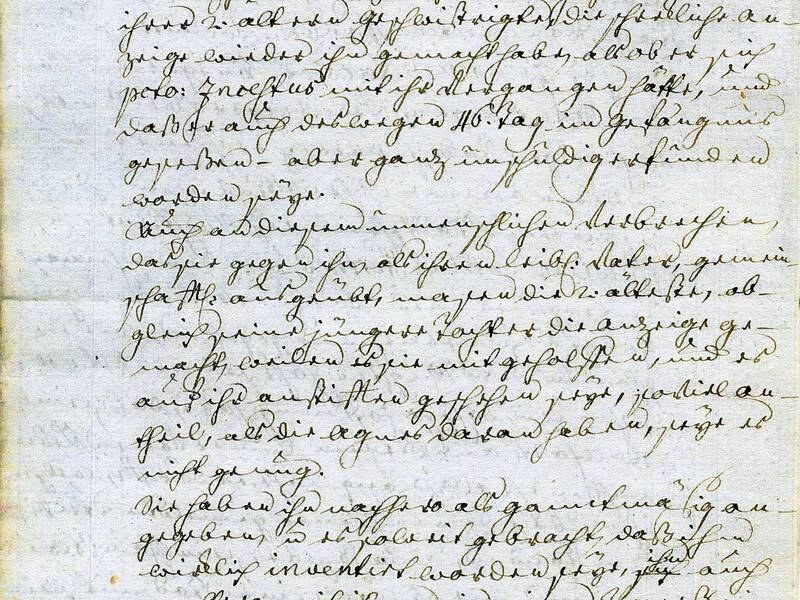 ihrer 2. ältern Geschwistrigten die schreckliche An-
zeige wieder ihn gemacht haben, als ob er sich
pcto: Incestus mit ihr vergangen hätte, und
daß er auch deswegen 46. Tag im Gefängnus
geseßen – aber ganz unschuldig erfunden
worden seye.
Auch an diesem unmenschlichen Verbrechen,
das sie gegen ihn, als ihren leibl. Vater, gemein-
schaftl: ausgeübt, masen die 2. älteste, ob-
gleich seine jüngere Tochter die Anzeige ge-
macht, weilen es sie mit geholffen, und es
auf ihr anstifften geschehen seye, soviel an-
theil, als die Agnes daran haben, seye es
nicht genug.
Sie haben ihn nachhero als ganntmäsig an-
gegeben, u es soweit gebracht, daß ihm
würklich inventirt worden seye, ihm auch